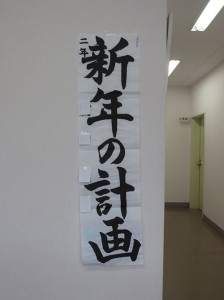 二年
新年の計画